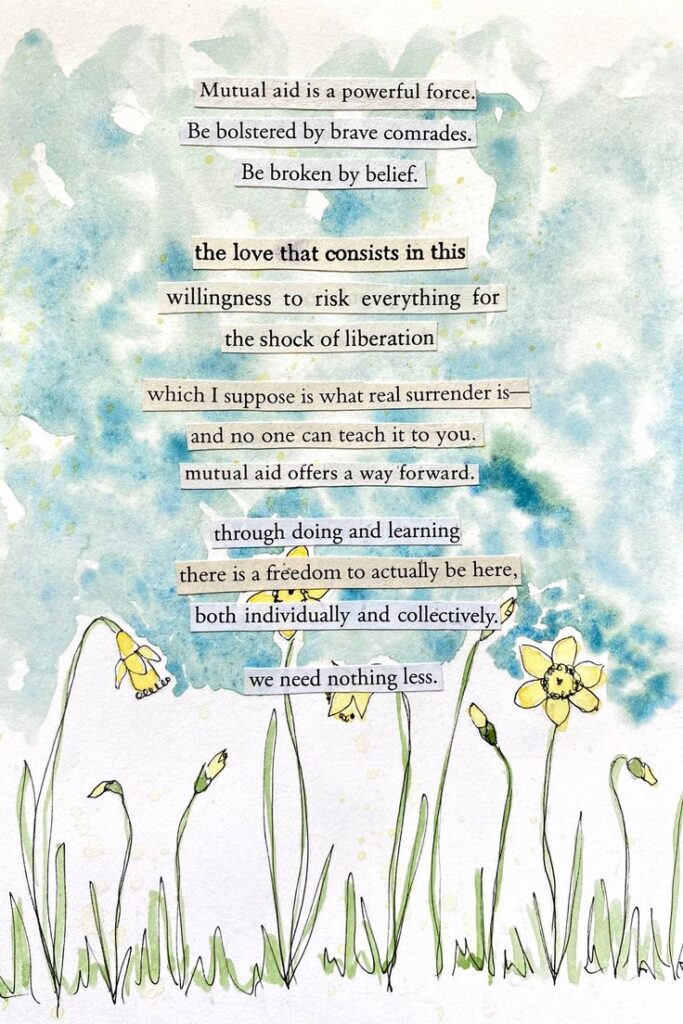 Mutual aid is a powerful force.
Be bolstered by brave comrades.
Be broken by belief.
the love that consists in this
willingness to risk everything for
the shock of liberation
which I suppose is what real surrender is—
and no one can teach it to you.
mutual aid offers a way forward.
through doing and learning
there is a freedom to actually be here,
both individually and collectively.
we need nothing less.